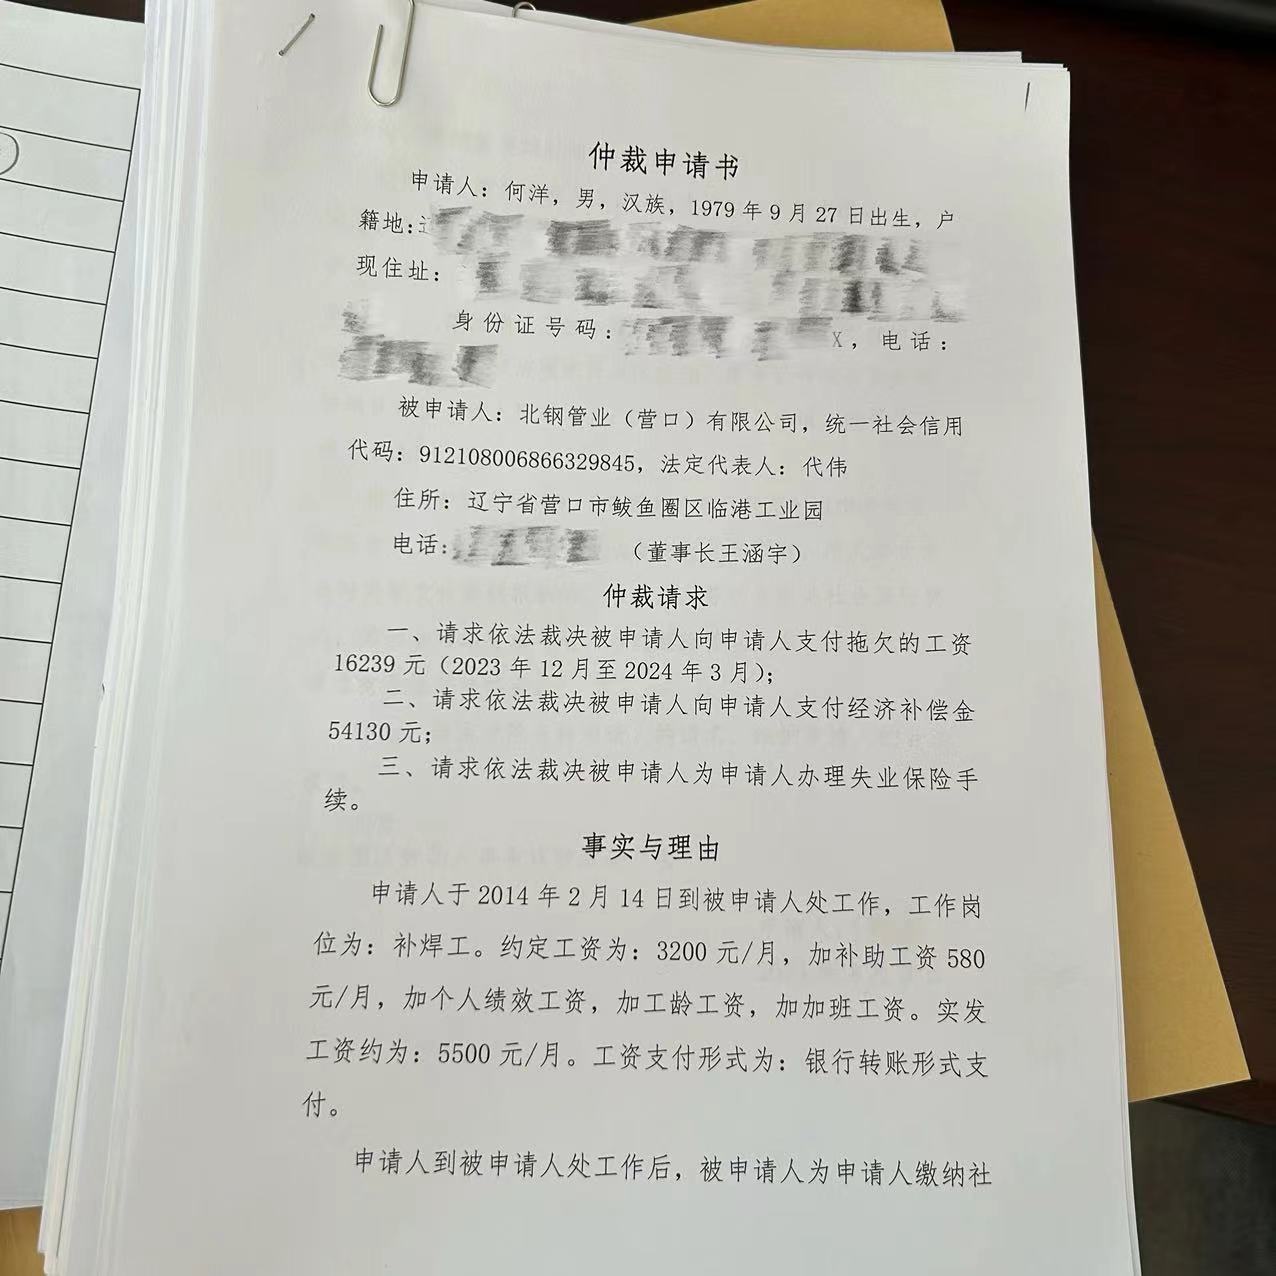 仲裁申请书
申请人：何洋，男，汉族，1979年9月27日出生，户
籍地:
现住址：
身份证号码：X，电话：
被申请人：北钢管业（营口）有限公司，统一社会信用
代码：912108006866329845，法定代表人：代伟
住所：辽宁省营口市鲅鱼圈区临港工业园
电话:（董事长王涵宇）
仲裁请求
一、请求依法裁决被申请人向申请人支付拖欠的工资
16239元（2023年12月至2024年3月）；
二、请求依法裁决被申请人向申请人支付经济补偿金
54130元；
三、请求依法裁决被申请人为申请人办理失业保险手
续。
事实与理由
申请人于2014年2月14日到被申请人处工作，工作岗
位为：补焊工。约定工资为：3200元/月，加补助工资580
元/月，加个人绩效工资，加工龄工资，加加班工资。实发
工资约为：5500元/月。工资支付形式为：银行转账形式支
付。
申请人到被申请人处工作后，被申请人为申请人缴纳社